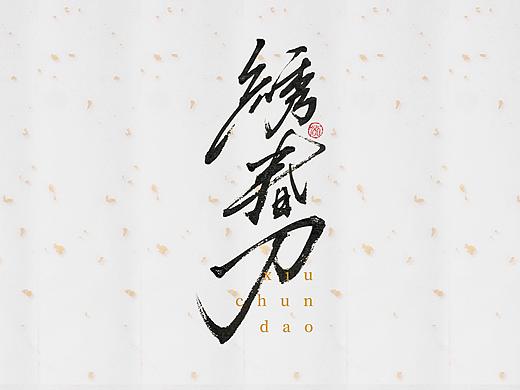 綉春刀
xiu
chun
dao